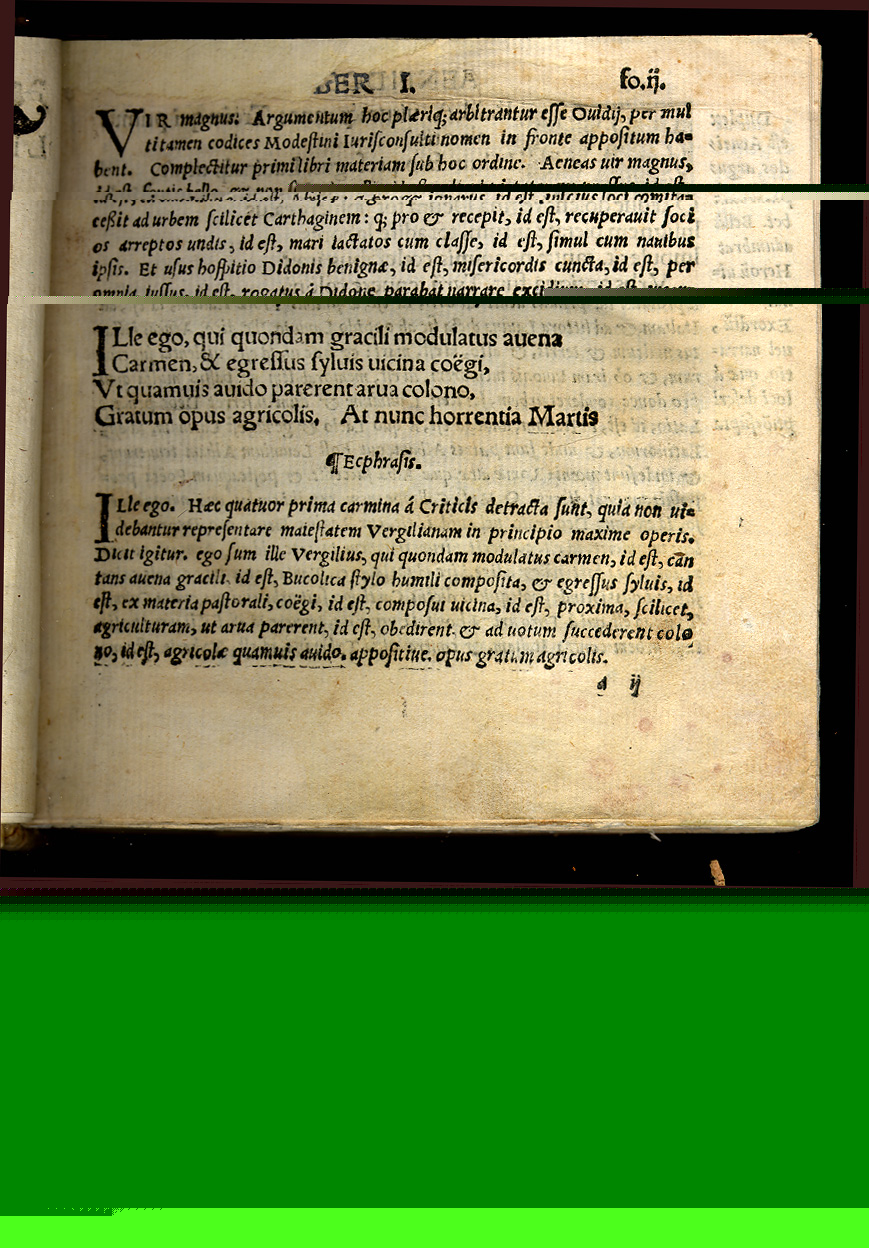 BER I. fo.ij.
VIR magnus: Argumentum hoc pleriq; arbitrantur esse Ouidij, per mul
ti tamen codices Modestini Iurisconsulti nomen in fronte appositum ha-
bent. Complectitur primi libri materiam sub hoc ordine. Aeneas uir magnus,
cessit ad urbem scilicet Carthaginem: q; pro & recepit, id est, recuperauit soci
os arreptos undis, id est, mari iactatos cum classe, id est, simul cum nauibus
ipsis. Et usus hospitio Didonis benignæ, id est, misericordis cuncta, id est, per
omnia iussus, id est, rogatus á Didone parabat narrare
ILle ego, qui quondam gracili modulatus auena
Carmen, & egressus syluis uicina coëgi,
Vt quamuis auido parerent arua colono,
Gratum opus agricolis, At nunc horrentia Martis
¶Ecphrasis.
ILle ego. Hæc quatuor prima carmina á Criticis detracta sunt, quia non ui-
debantur repræsentare maiestatem Vergilianam in principio maxime operis.
Dicit igitur. ego sum ille Vergilius, qui quondam modulatus carmen, id est, cãn
tans auena gracili. id est, Bucolica stylo humili composita, & egressus syluis, id
est, ex materia pastorali, coëgi, id est, composui uicina, id est, proxima, scilicet,
agriculturam, ut arua parerent, id est, obedirent. & ad uotum succederent colo
no, id est, agricolæ quamuis auido. appositiue. opus gratum agricolis.
a ij